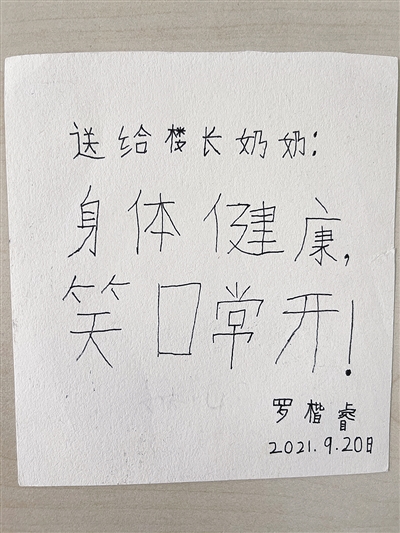 送给楼长奶奶:
身体健康,
笑口常开!
罗楷睿
2021.9.20日